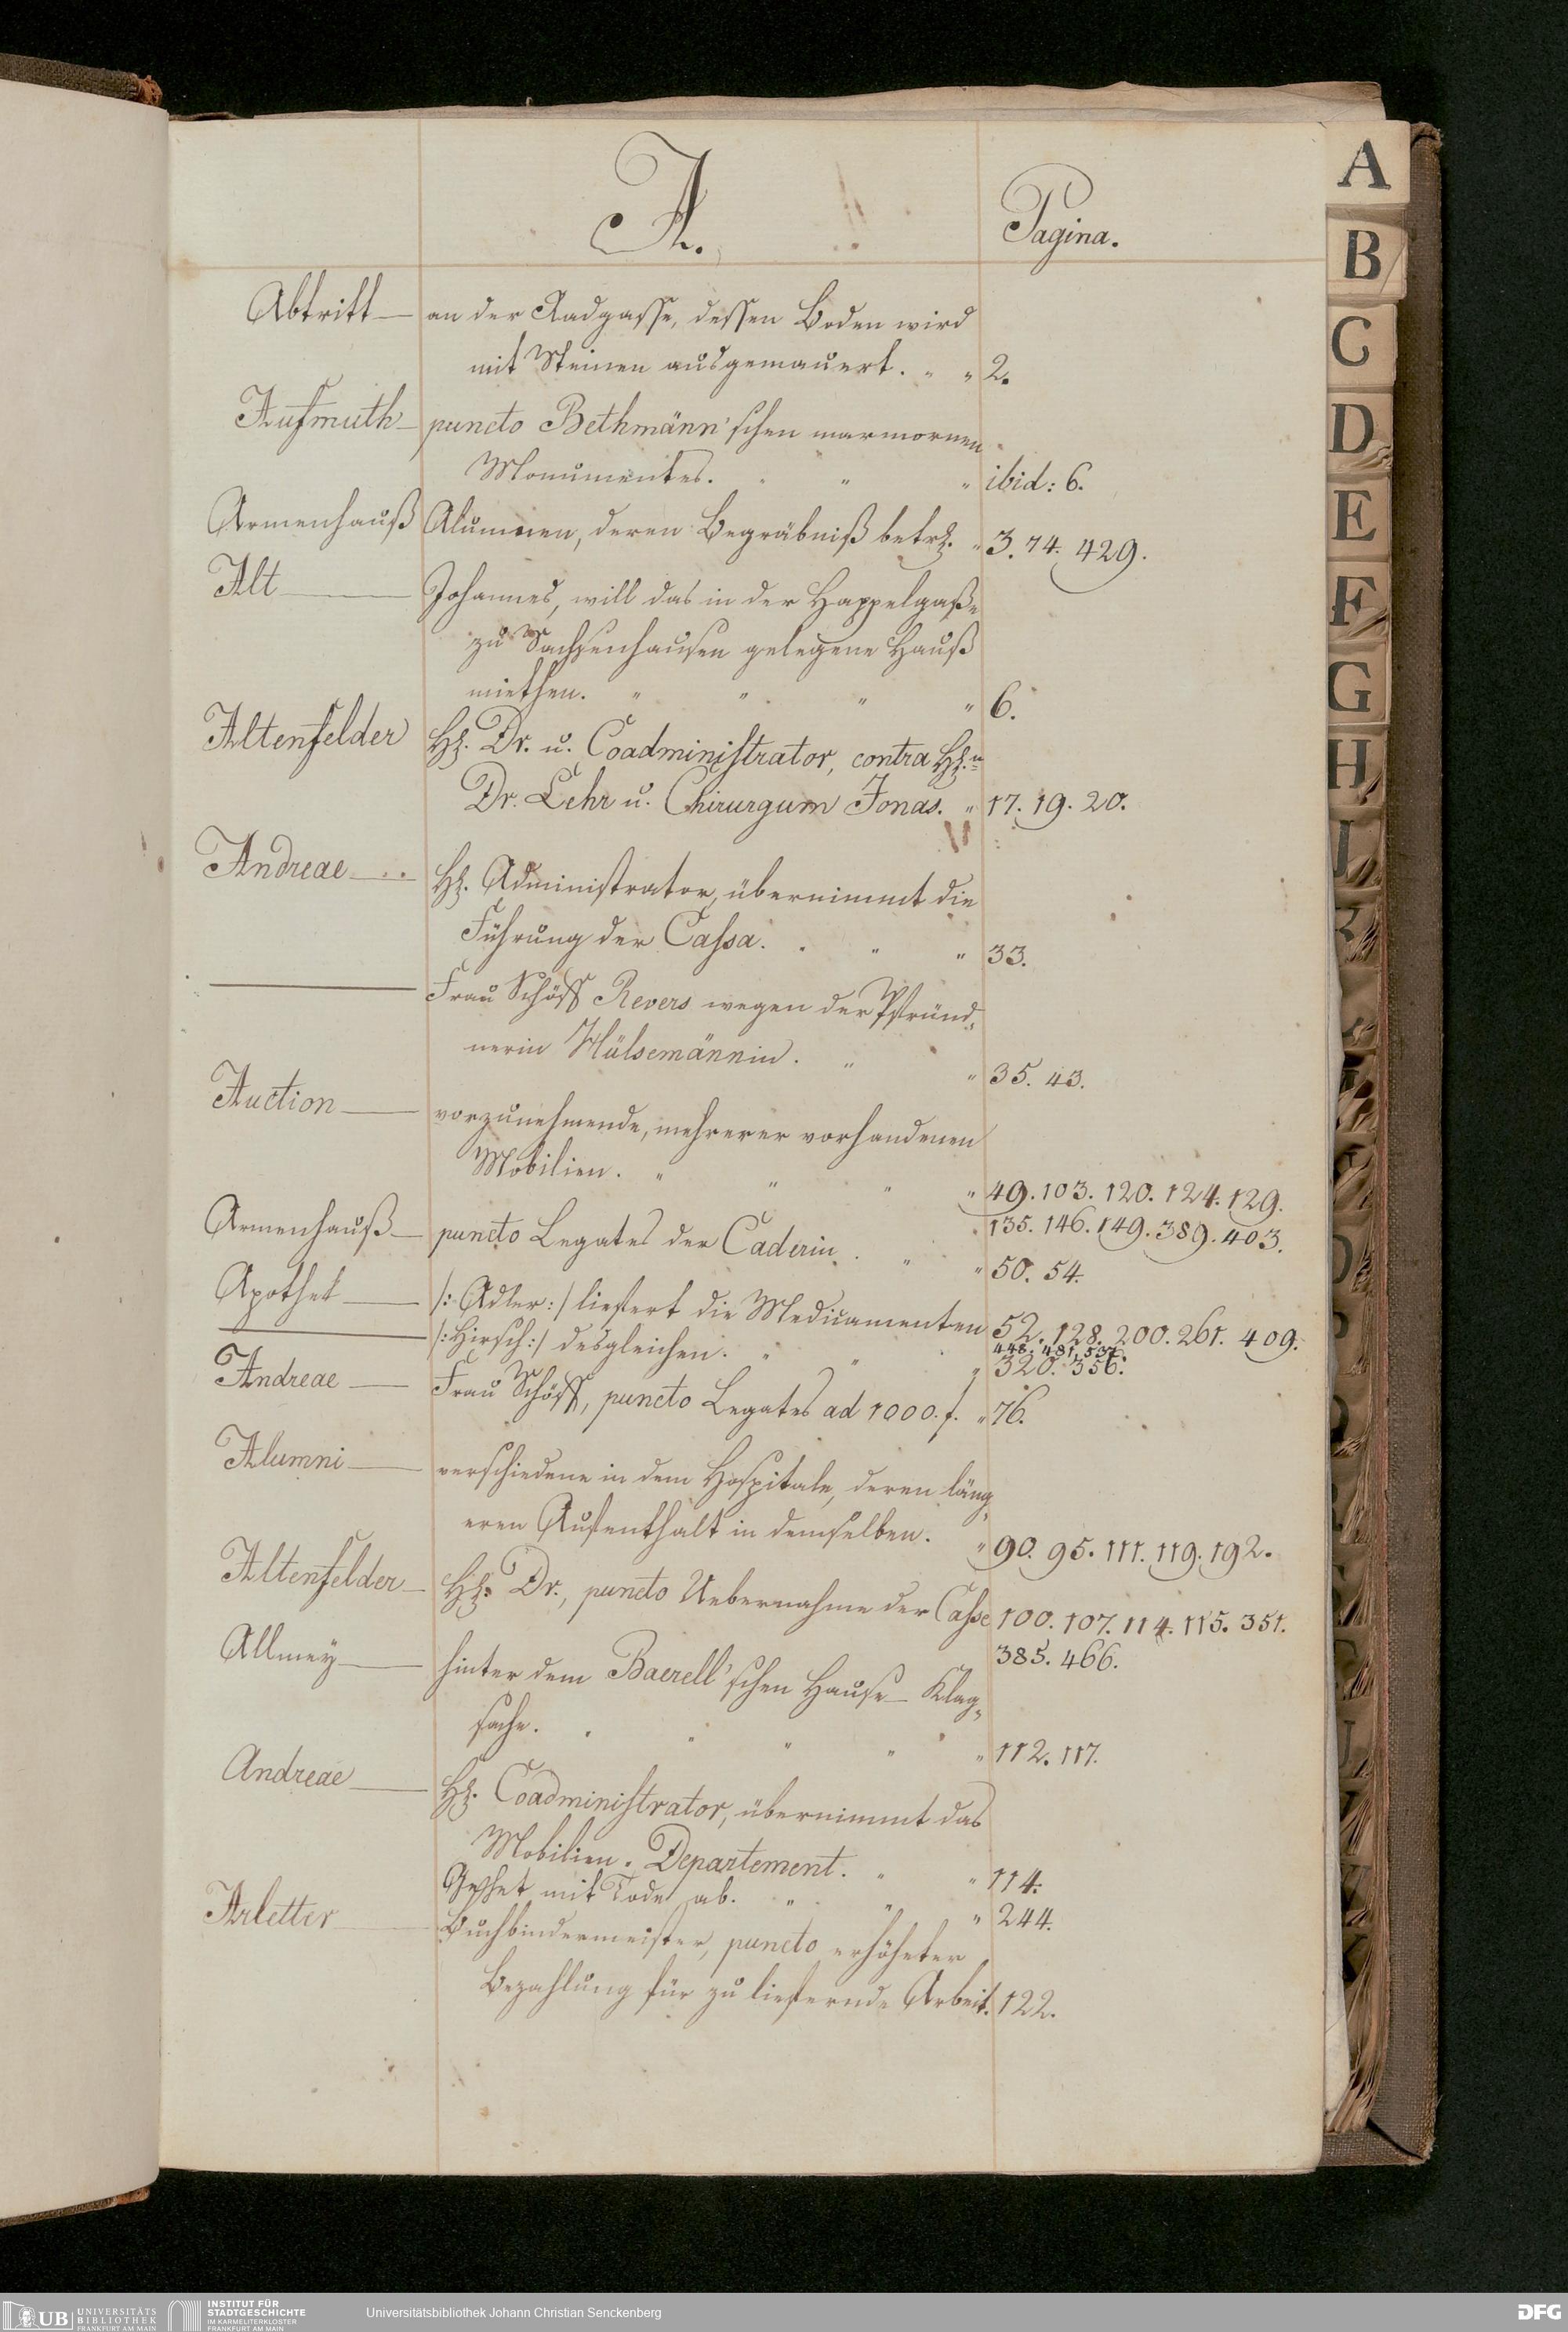 A.
Pagina.
Abtritt — an der Radgasse, dessen Boden wird
mit Steinen ausgemauert. " " 2.
Aufmuth — puncto Bethmänn'schen marmornen
Monumentes. " " " ibid: 6.
Armenhauß Alumnen, deren Begräbniß betr. " 3. 74. 429.
Alt — Johannes, will das in der Happelgaße
zu Sachsenhausen gelegene Hauß
miethen. " " " " 6.
Altenfelder H. Dr. u. Coadministrator, contra H.n
Dr. Lehr u. Chirurgum Jonas. " 17. 19. 20.
Andreae — H. Administrator, übernimmt die
Führung der Cassa. . " " 33.
— Frau Schöff Revers wegen der Pfründ„
nerin Hülsemännin. " " 35. 43.
Auction — vorzunehmende, mehrerer vorhandenen
Mobilien. " " " " 49. 103. 120. 124. 129.
135. 146. 149. 389. 403.
Armenhauß — puncto Legates der Caderin. . " " 50. 54.
Apothek — /: Adler :/ liefert die Medicamenten 52. 128. 200. 261. 409.
448. 481. 537.
— /: Hirsch :/ desgleichen. " " " 320. 356.
Andreae — Frau Schöff, puncto Legates ad 1000. f. " 76.
Alumni — verschiedene in dem Hospitale, deren läng„
eren Aufenthalt in demselben. " 90. 95. 111. 119. 192.
Altenfelder — H. Dr., puncto Uebernahme der Casse 100. 107. 114. 115. 351.
385. 466.
Allmey — hinter dem Baerell'schen Hause — Klag„
sache. . " " " " 112. 117.
Andreae — H. Coadministrator, übernimmt das
Mobilien-Departement. " " 114.
Gehet mit Tode ab. " " " 244.
Arletter — Buchbindermeister, puncto erhöheter
Bezahlung für zu liefernde Arbeit. 122.
A
B
C
D
E
F
G
H
UB UNIVERSITÄTS
BIBLIOTHEK
FRANKFURT AM MAIN
INSTITUT FÜR
STADTGESCHICHTE
IM KARMELITERKLOSTER
FRANKFURT AM MAIN
Universitätsbibliothek Johann Christian Senckenberg
DFG